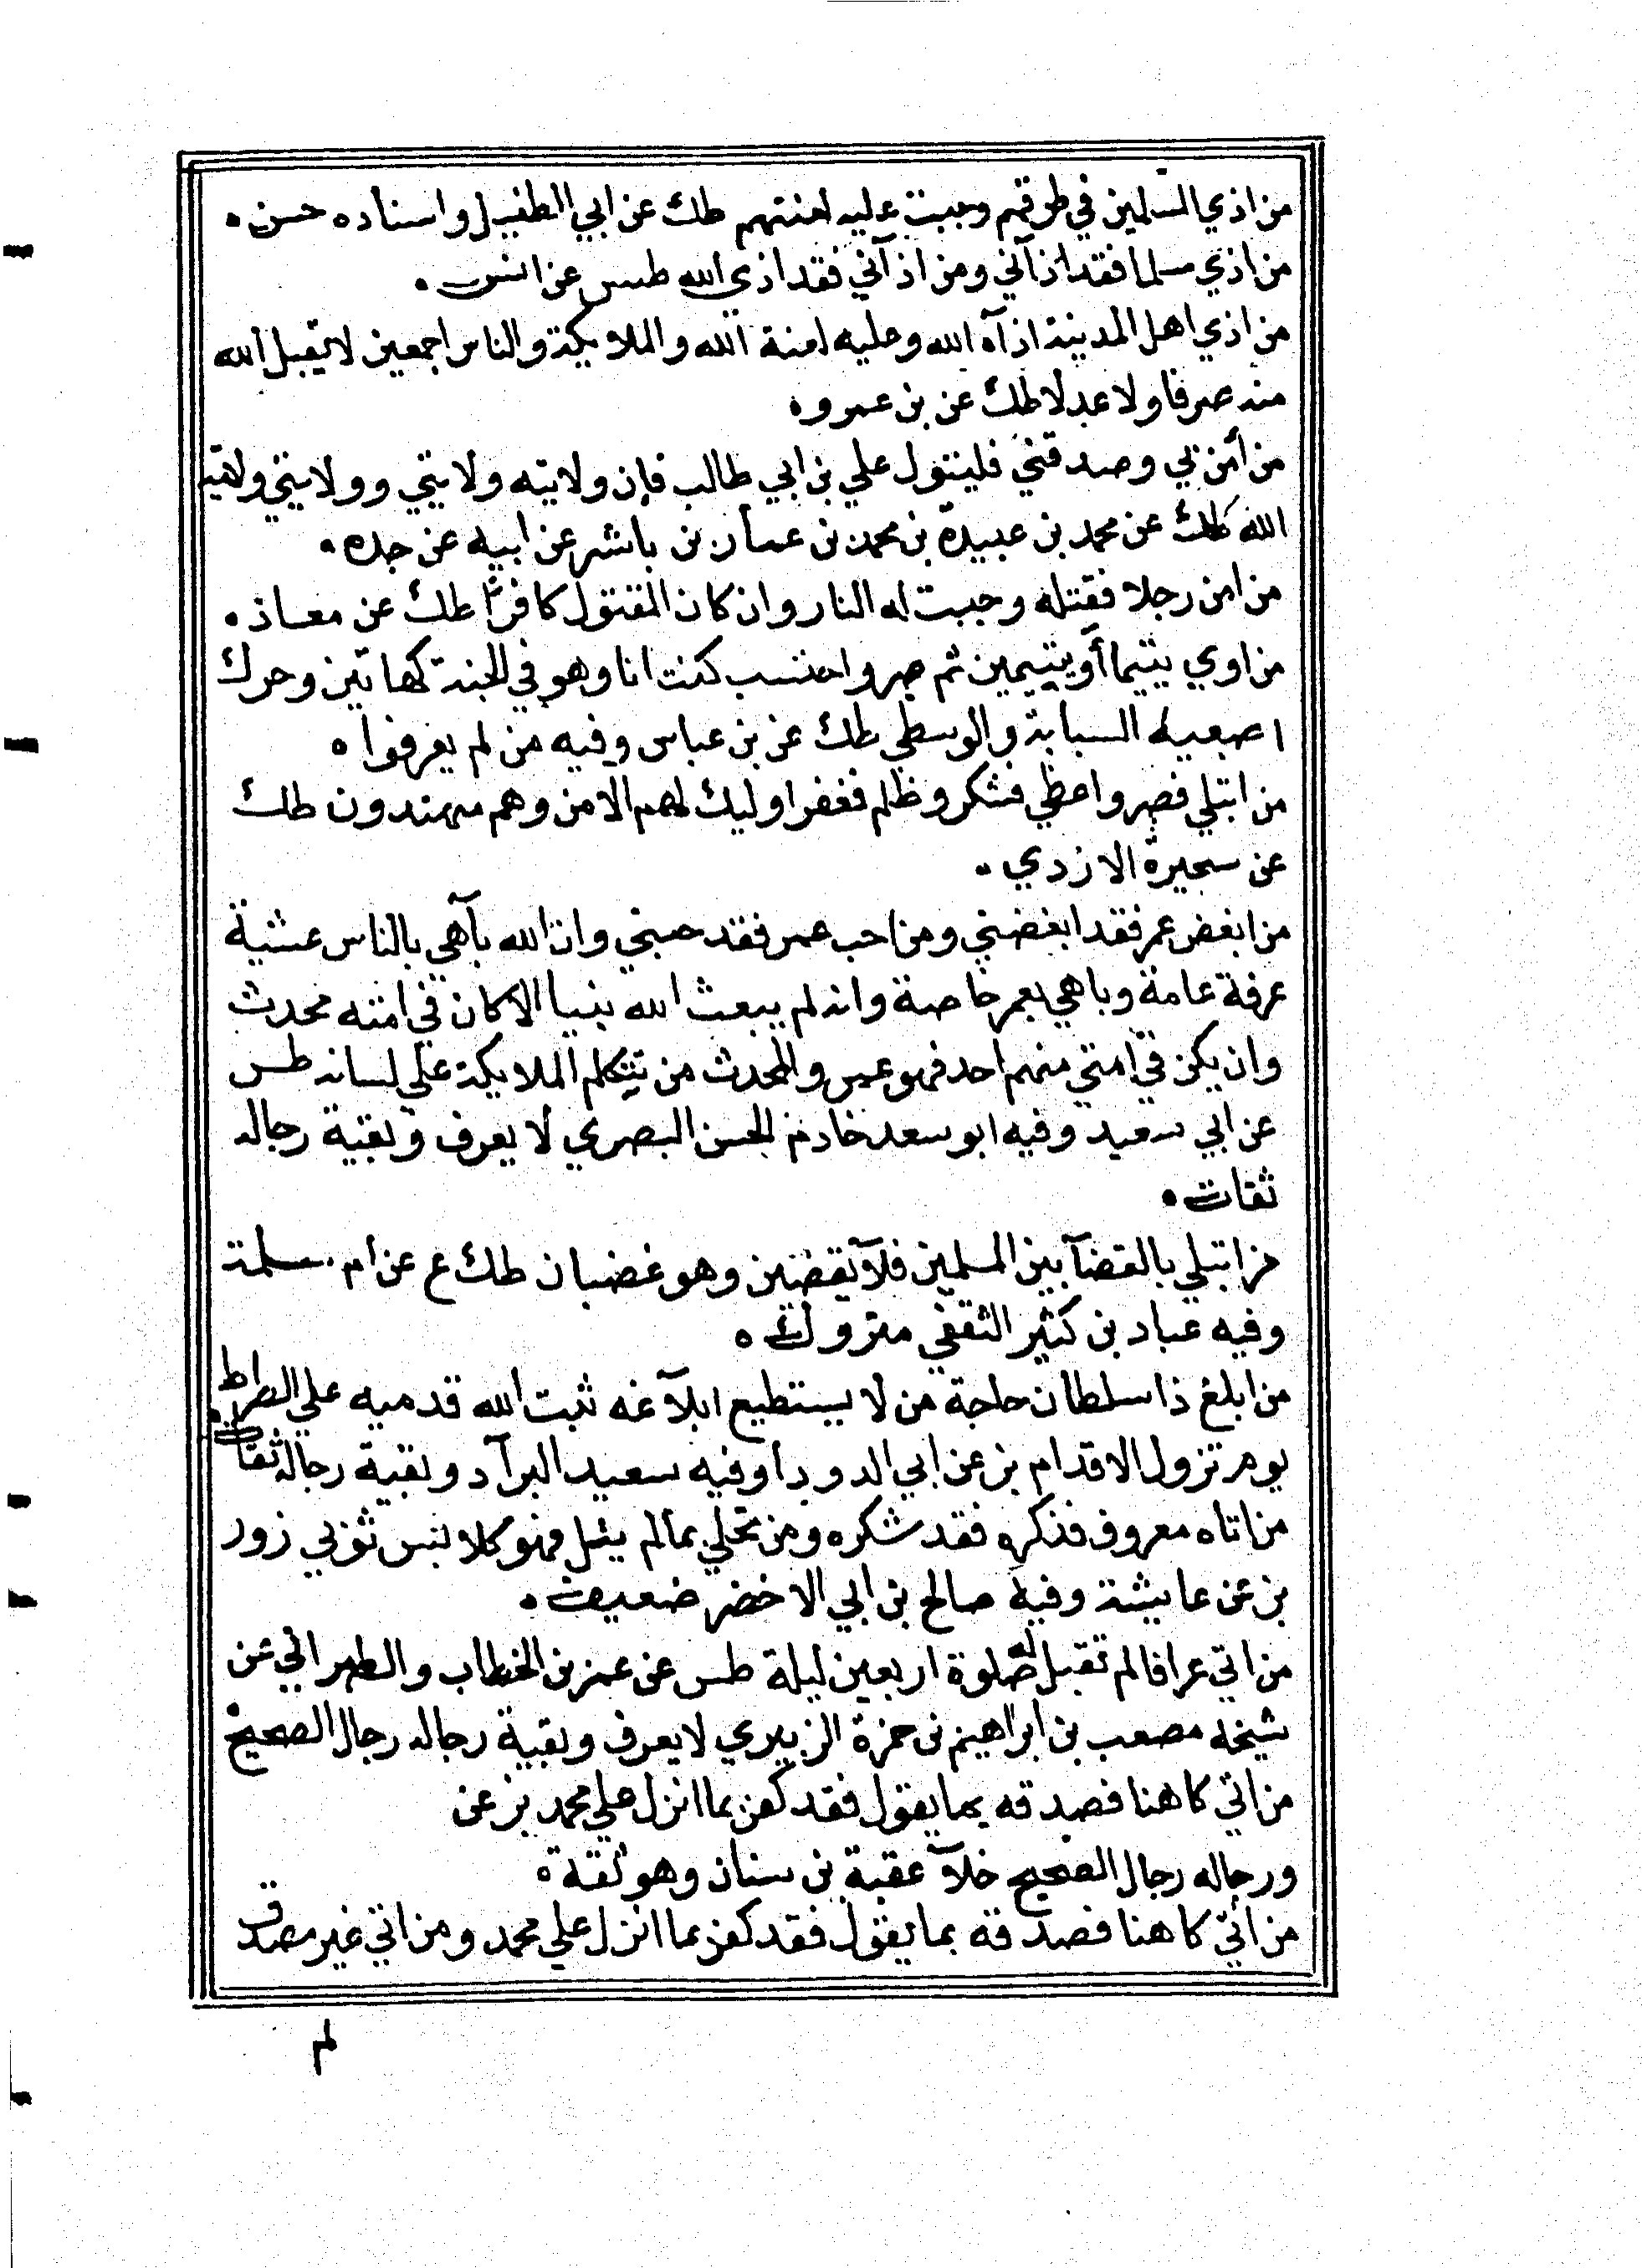 من اذي المسلمين في طرقهم وجبت عليه لعنتهم طك عن ابي الطفيل واسناده حسن ٠
من اذي مسلما فقد اذآني ومن اذآني فقد اذي الله طس عن انس ٠
من اذي اهل المدينة اذآه الله وعليه لعنة الله والملايكة والناس اجمعين لا يقبل الله
منه صرفا ولا عدلا طك عن بن عمرو ه
من أمن بي وصدقني فليتول علي بن ابي طالب فإن ولايته ولايتي وولايتي ولاية
الله طك عن محمد بن عبيدة بن محمد بن عمار بن ياسر عن ابيه عن جده ٠
من امن رجلا فقتله وجبت له النار وان كان المقتول كافرا طك عن معاذ ٠
من اوي يتيما أو يتيمين ثم صبر واحتسب كنت انا وهو في الجنة كهاتين وحرك
اصبعيه السبابة والوسطي طك عن بن عباس وفيه من لم يعرفوا ه
من ابتلي فصبر واعطي فشكر وظلم فغفر اوليك لهم الامن وهم مهتدون طك
عن سحبرة الازدي ٠
من ابغض عمر فقد ابغضني ومن احب عمر فقد حبني وان الله بآهي بالناس عشية
عرفة عامة وباهي بعمر خاصة وانه لم يبعث الله نبيا الا كان في امته محدث
وان يكن في امتي منهم احد فهو عمر والمحدث من تتكلم الملايكة علي لسانه طس
عن ابي سعيد وفيه ابو سعد خادم الحسن البصري لا يعرف وبقية رجاله
ثقات ٠
من ابتلي بالقضآ بين المسلمين فلا يقضين وهو غضبان طك ع عن أم سلمة
وفيه عباد بن كثير الثقفي متروك ه
من ابلغ ذا سلطان حاجة من لا يستطيع ابلآغه ثبت الله قدميه علي الصراط
يوم تزول الاقدام بز عن ابي الدردا وفيه سعيد البرآد وبقية رجاله ثقات
من اتاه معروف فذكره فقد شكره ومن تحلي بمالم ينل فهو كلابس ثوبي زور
بز عن عايشة وفيه صالح بن ابي الاخضر ضعيف ٠
من اتي عرافا لم تقبل له صلوة اربعين ليلة طس عن عمر بن الخطاب والطبراني عن
شيخه مصعب بن ابراهيم بن حمزة الزبيري لا يعرف وبقية رجاله رجال الصحيح
من اتي كاهنا فصدقه بما يقول فقد كفر بما انزل علي محمد بز عن
ورجاله رجال الصحيح خلآ عقبة بن سنان وهو ثقة ه
من أتي كاهنا فصدقه بما يقول فقد كفر بما انزل علي محمد ومن اتي غير مصدق
لم